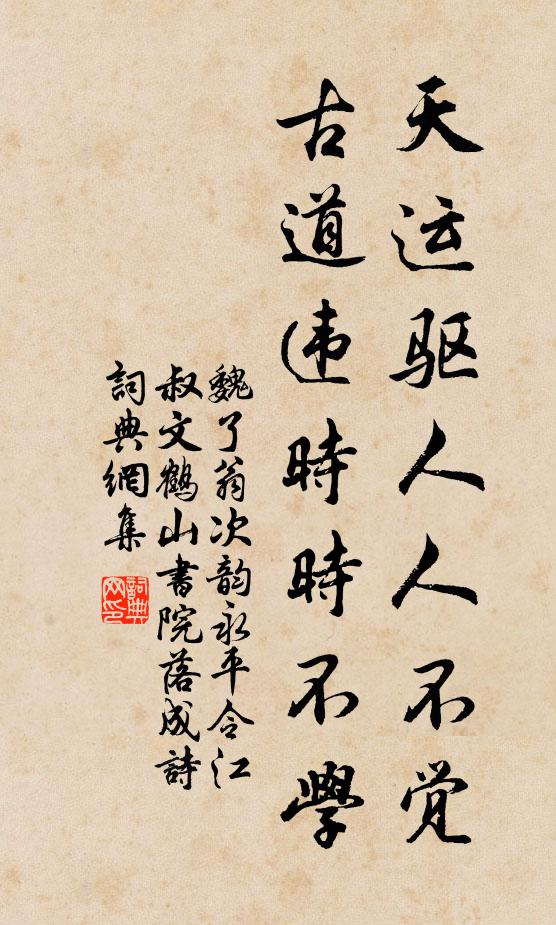 天运驱人人不觉
古道违時時不學
魏了翁次韵永平令江
叔文鶴山書院落成詩
詞典網集
詞典
网印